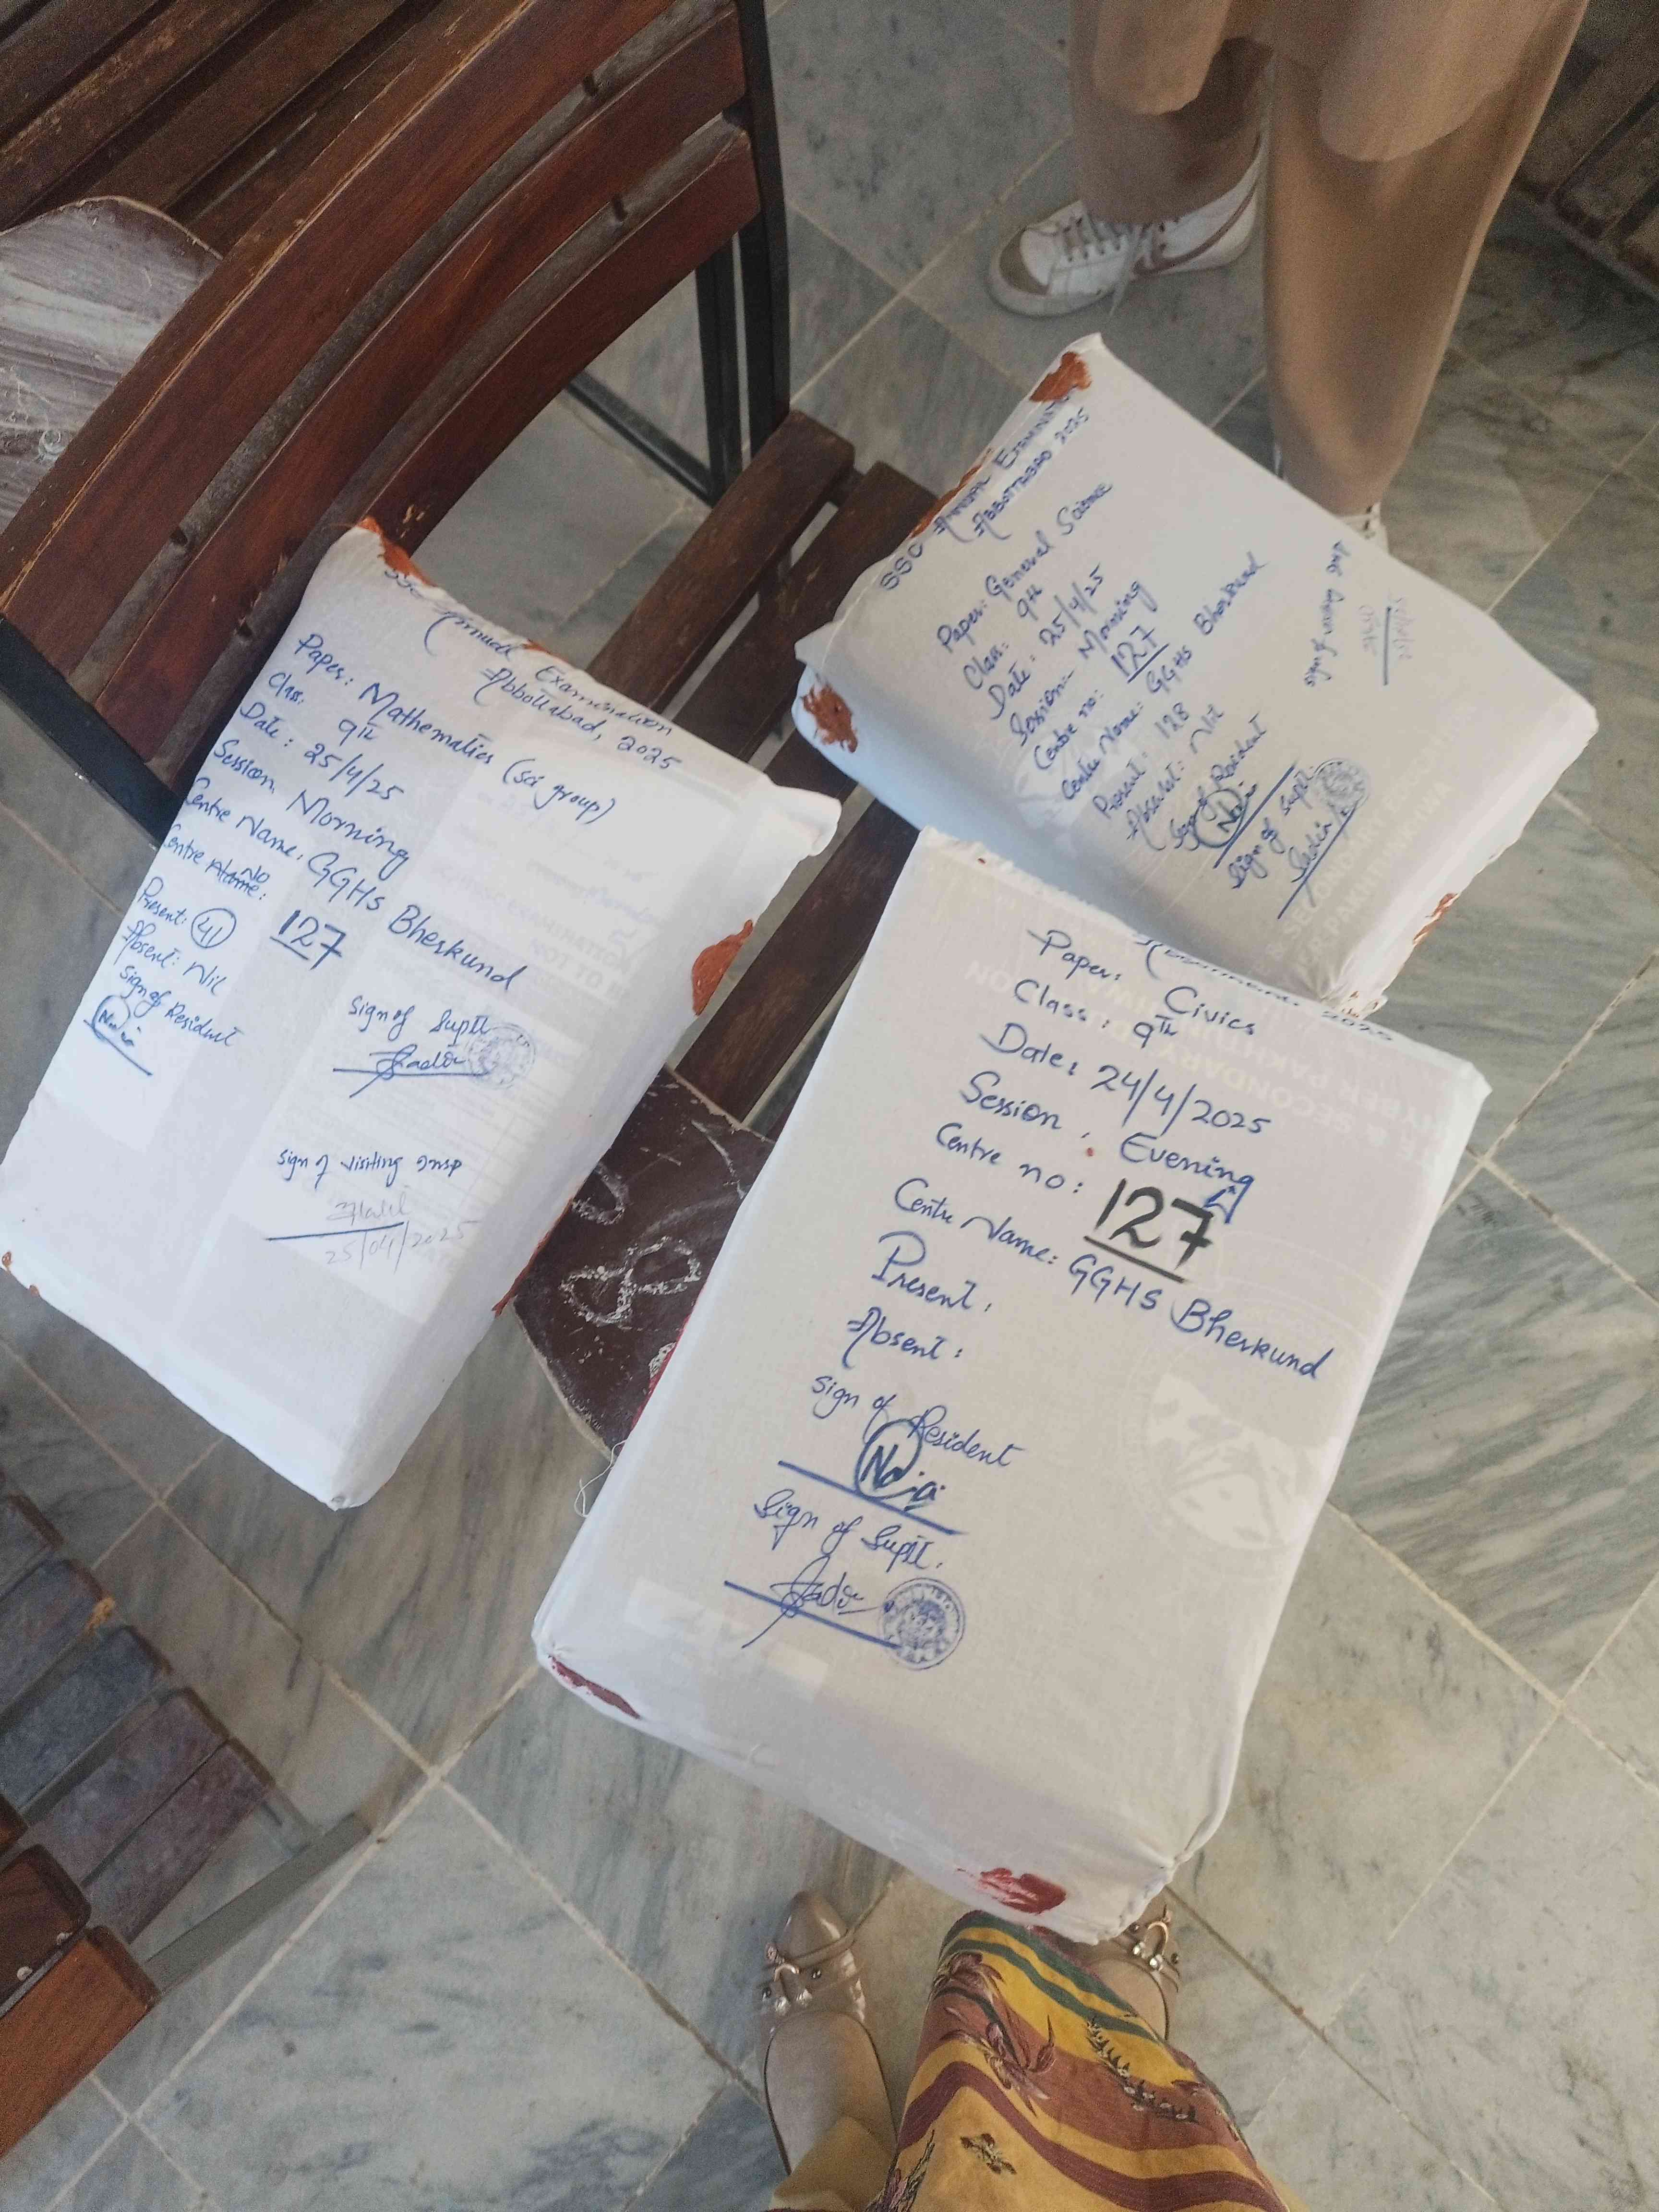 SSC Annual Examination
Abbottabad, 2025
Paper: Mathematics (sci group)
Class: 9th
Date: 25/4/25
Session: Morning
Centre Name: GGHS Bherkund
Centre No: 127
Present: 41
Absent: Nil
Sign of Resident
Sign of Suptt
Sign of visiting Insp
25/04/2025
SSC ANNUAL EXAMINATION
ABBOTTABAD 2025
Paper: General Science
Class: 9th
Date: 25/4/25
Session:- Morning
Centre no: 127
Centre Name: GGHS Bherkund
Present: 128
Absent: Nil
Sign of Resident
Sign of Suptt.
2025
Paper: Civics
Class: 9th
Date: 24/4/2025
Session: Evening
Centre no: 127
Centre Name: GGHS Bherkund
Present:
Absent:
Sign of Resident
Sign of Suptt.